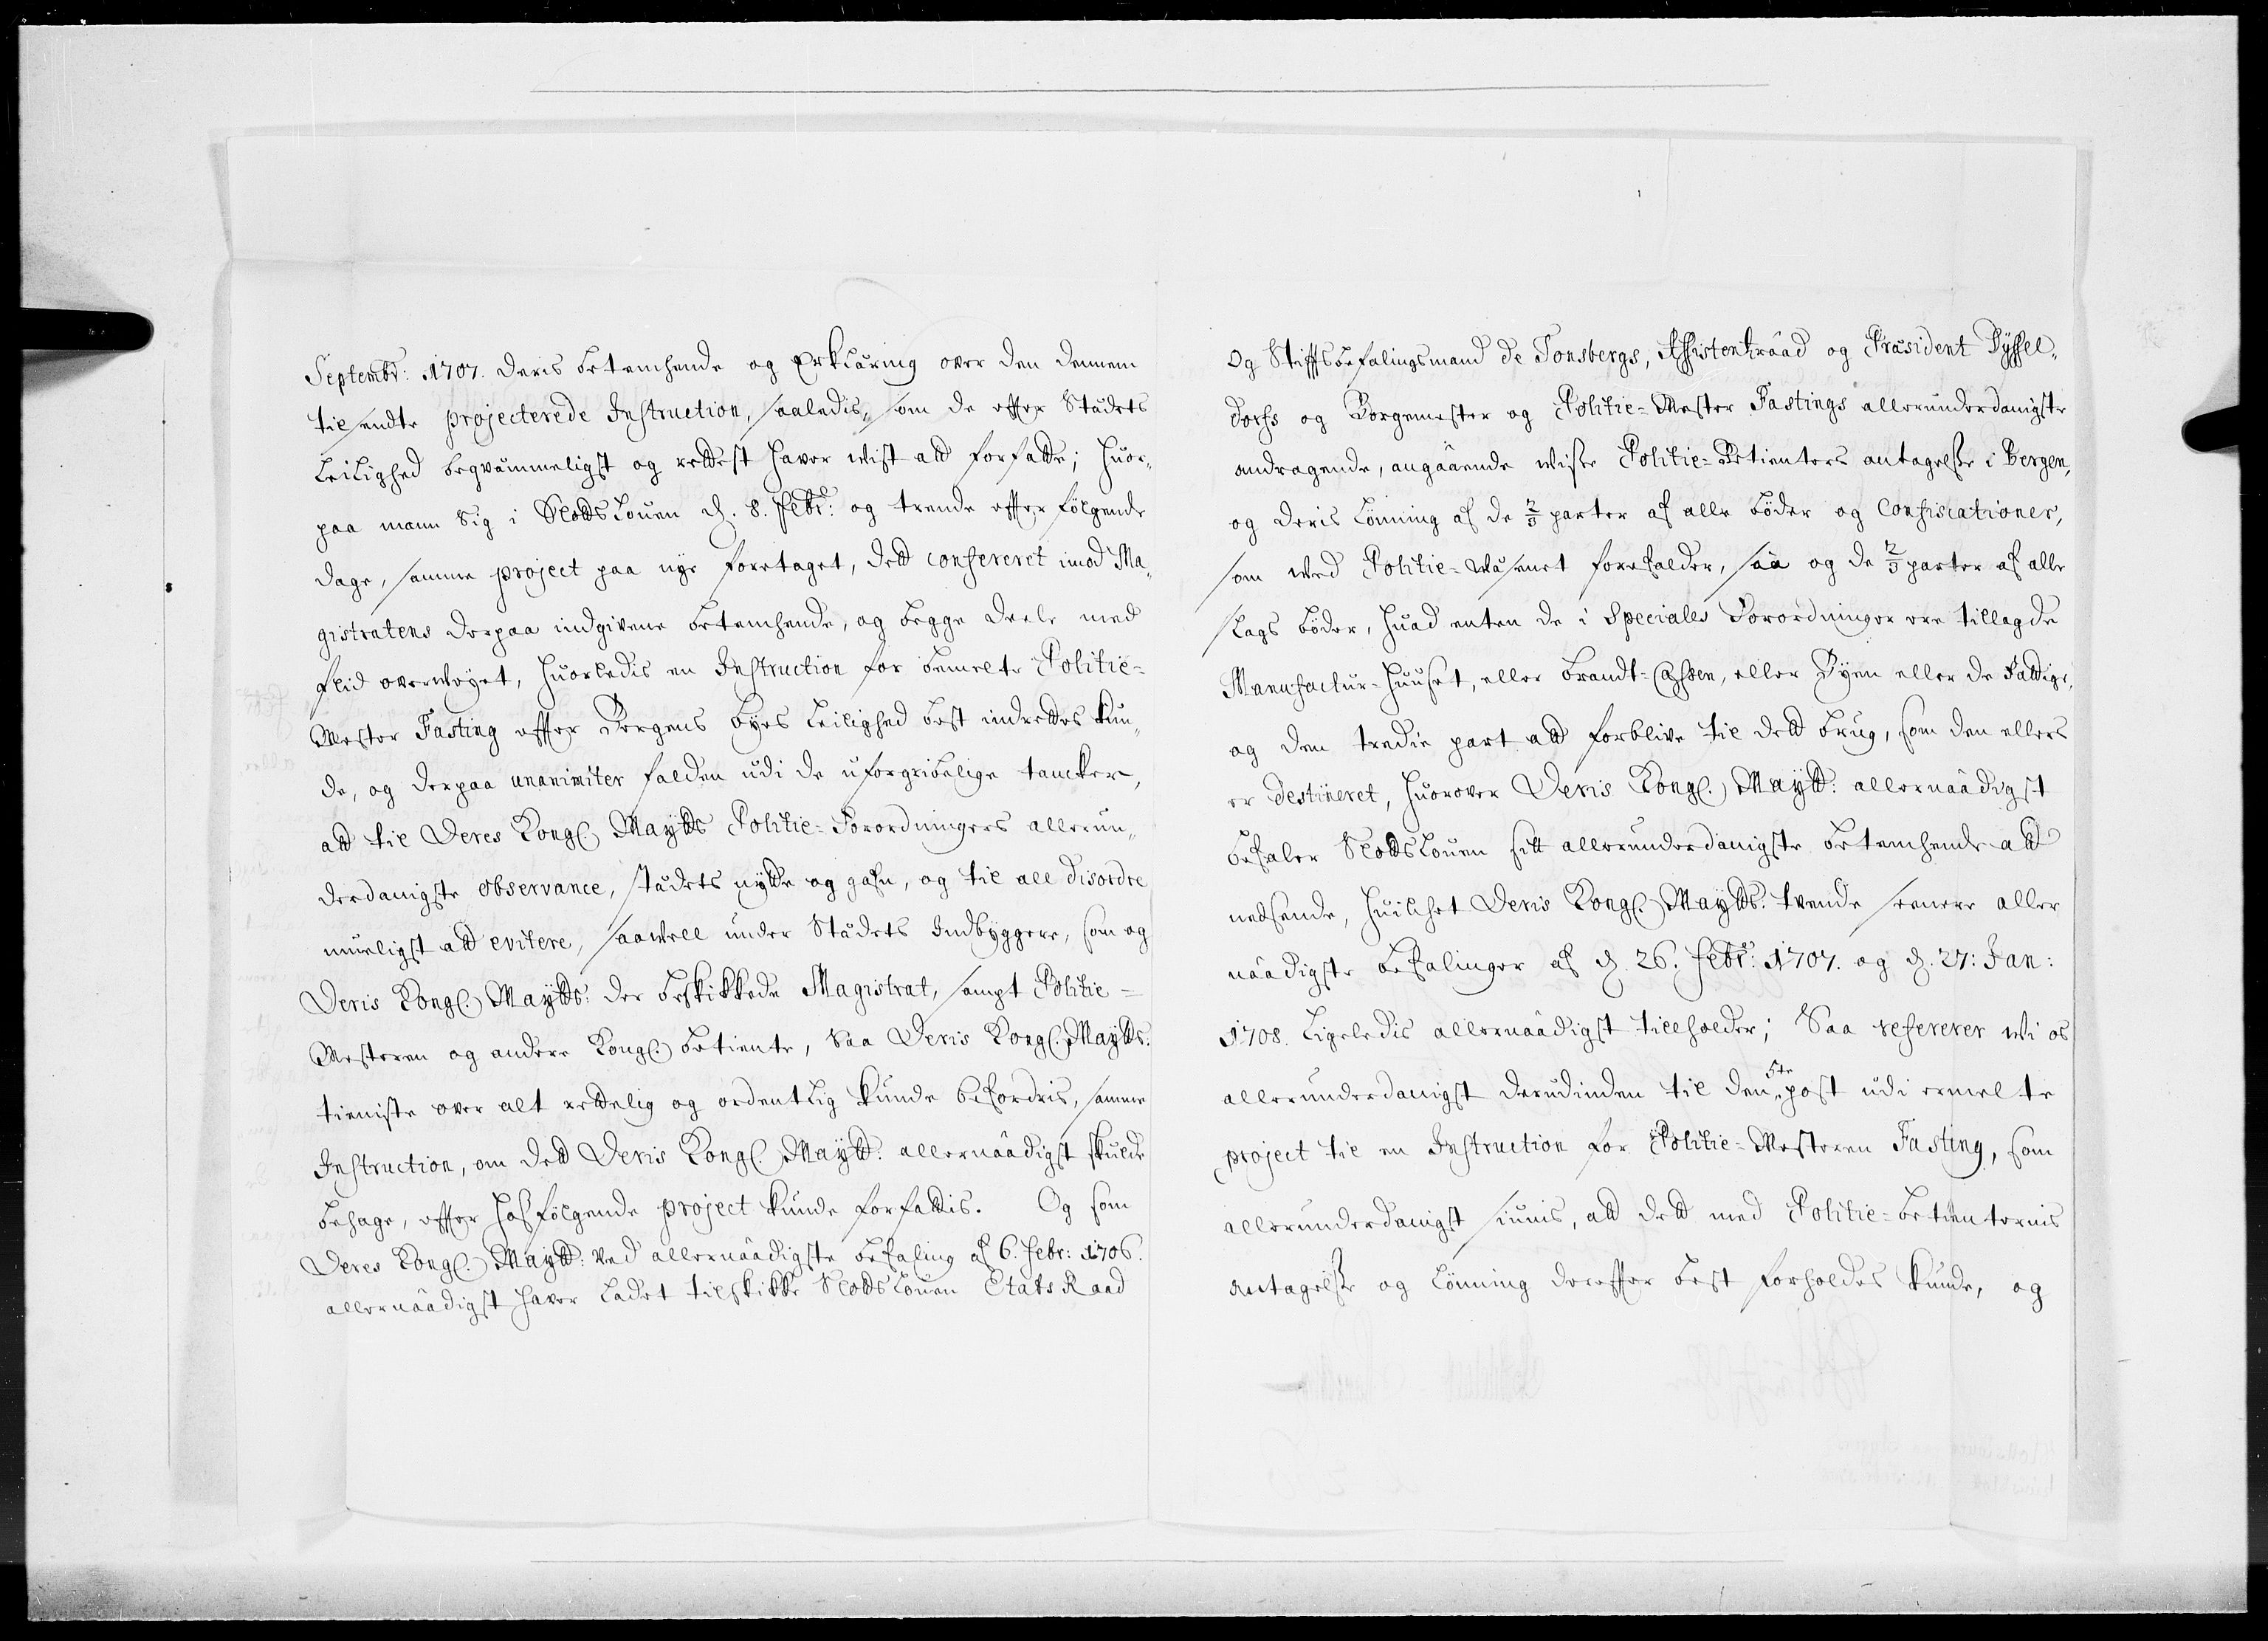 Septembr: 1707. deris betenchende og Erklæring over den dennem
tilsendte projecterede Instruction, saaledis, som de effter Stædets
Leilighed beqvæmmeligst og rettest haver vist att forfatte; huor„
paa mann sig i SlottsLouen d. 8. Febr: og trende effterfølgende
dage, samme project paa nye foretaget, dett confereret imod Ma„
gistratens derpaa indgivene betenchende, og begge deele med
flid overvejet, huorledis en Instruction for bemelte Politie=
Mester Fasting effter Bergens byes Leilighed best indrettes kun„
de, og derpaa unanimiter falden udi de uforgribelige tancker,
att til Deres Kongl. Maytts Politie=Forordningers allerun„
derdanigste observance, stædets nytte og gafn, og til all disordre
mueligst att evitere, saavell under Stædets Indbyggere, som og
Deris Kongl. Maytts: der beskikkede Magistrat, sampt Politie=
Mesteren og andere Kongl. betiente, saa Deris Kongl. Maytts.
tieniste over alt rettelig og ordentlig kunde befordris, samme
Instruction, om dett Deris Kongl. Maytt: allernaadigst skulde
behage, effter hosfølgende project kunde forfattis. Og som
Deres Kongl. Maytt: ved allernaadigste befaling af 6. Febr: 1706.
allernaadigst haver ladet tilskikke SlottsLouen Etats Raad
og Stifftsbefalingsmand de Tonsbergs, Assistentzraad og Præsident Dyssel„
dorfs og Borgemester og Politie=Mester Fastings allerunderdanigste
andragende, angaaende visse Politie=Betienters antagelse i Bergen,
og deris Lønning af de 2/3 parter af alle bøder og Confiscationer,
som ved Politie=Væsenet forefalder, saa og de 2/3 parter af alle
slags bøder, huad enten de i Speciales Forordninger ere tillagde
Manufactur=Huuset, eller Brandt=Cassen, eller Byen eller de Fattige,
og den tredie part att forblive til dett brug, som den ellers
er destineret, huorover Deris Kongl. Maytt: allernaadigst
befaler SlottsLouen sitt allerunderdanigste betenchende att
nedsende, huilchet Deris Kongl. Maytts. tvende seenere aller
naadigste befalinger af d. 26. Febr: 1707. og d. 27: Jan:
1708. ligeledis allernaadigst tillholder; Saa refererer vi os
allerunderdanigst derudinden til den 5te post udi ermelte
project til en Instruction for Politie=Mesteren Fasting, som
allerunderdanigst siunis, att dett med Politie=betienternis
antagelse og Lønning dereffter best forholdes kunde, og